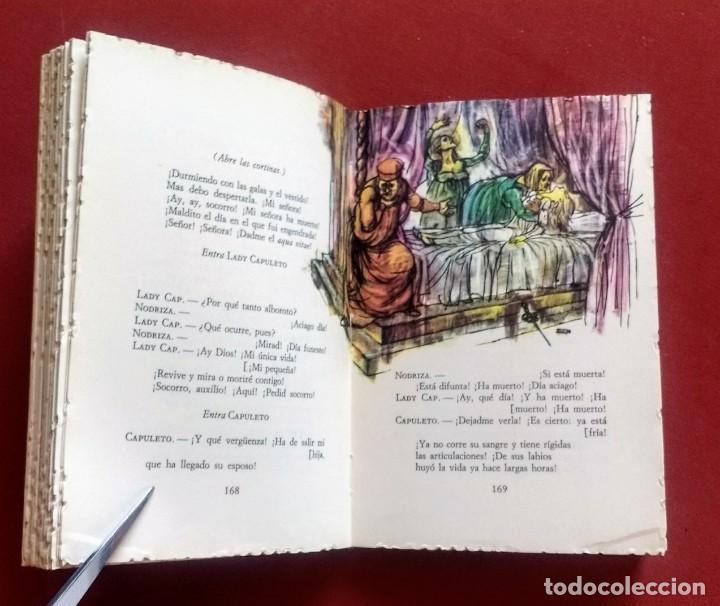 (Abre las cortinas.)
¡Durmiendo con las galas y el vestido!
Mas debo despertarla. ¡Mi señora!
¡Ay, ay, socorro! ¡Mi señora ha muerto!
¡Maldito el día en el que fui engendrada!
¡Señor! ¡Señora! ¡Dadme el aqua vitae!
Entra LADY CAPULETO
LADY CAP. — ¿Por qué tanto alboroto?
NODRIZA. — ¡Aciago día!
LADY CAP. — ¿Qué ocurre, pues?
NODRIZA. — ¡Mirad! ¡Día funesto!
LADY CAP. — ¡Ay Dios! ¡Mi única vida!
[¡Mi pequeña!
¡Revive y mira o moriré contigo!
¡Socorro, auxilio! ¡Aquí! ¡Pedid socorro!
Entra CAPULETO
CAPULETO. — ¡Y qué vergüenza! ¡Ha de salir mi
[hija,
que ha llegado su esposo!
168
NODRIZA. — ¡Si está muerta!
¡Está difunta! ¡Ha muerto! ¡Día aciago!
LADY CAP. — ¡Ay, qué día! ¡Y ha muerto! ¡Ha
[muerto! ¡Ha muerto!
CAPULETO. — ¡Dejadme verla! ¡Es cierto: ya está
[fría!
¡Ya no corre su sangre y tiene rígidas
las articulaciones! ¡De sus labios
huyó la vida ya hace largas horas!
169
todocoleccion.net